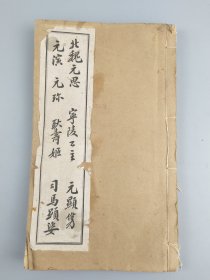 北魏元思 寧陵公主 元顯儁
元演 元珍 耿壽姬 司馬顯姿